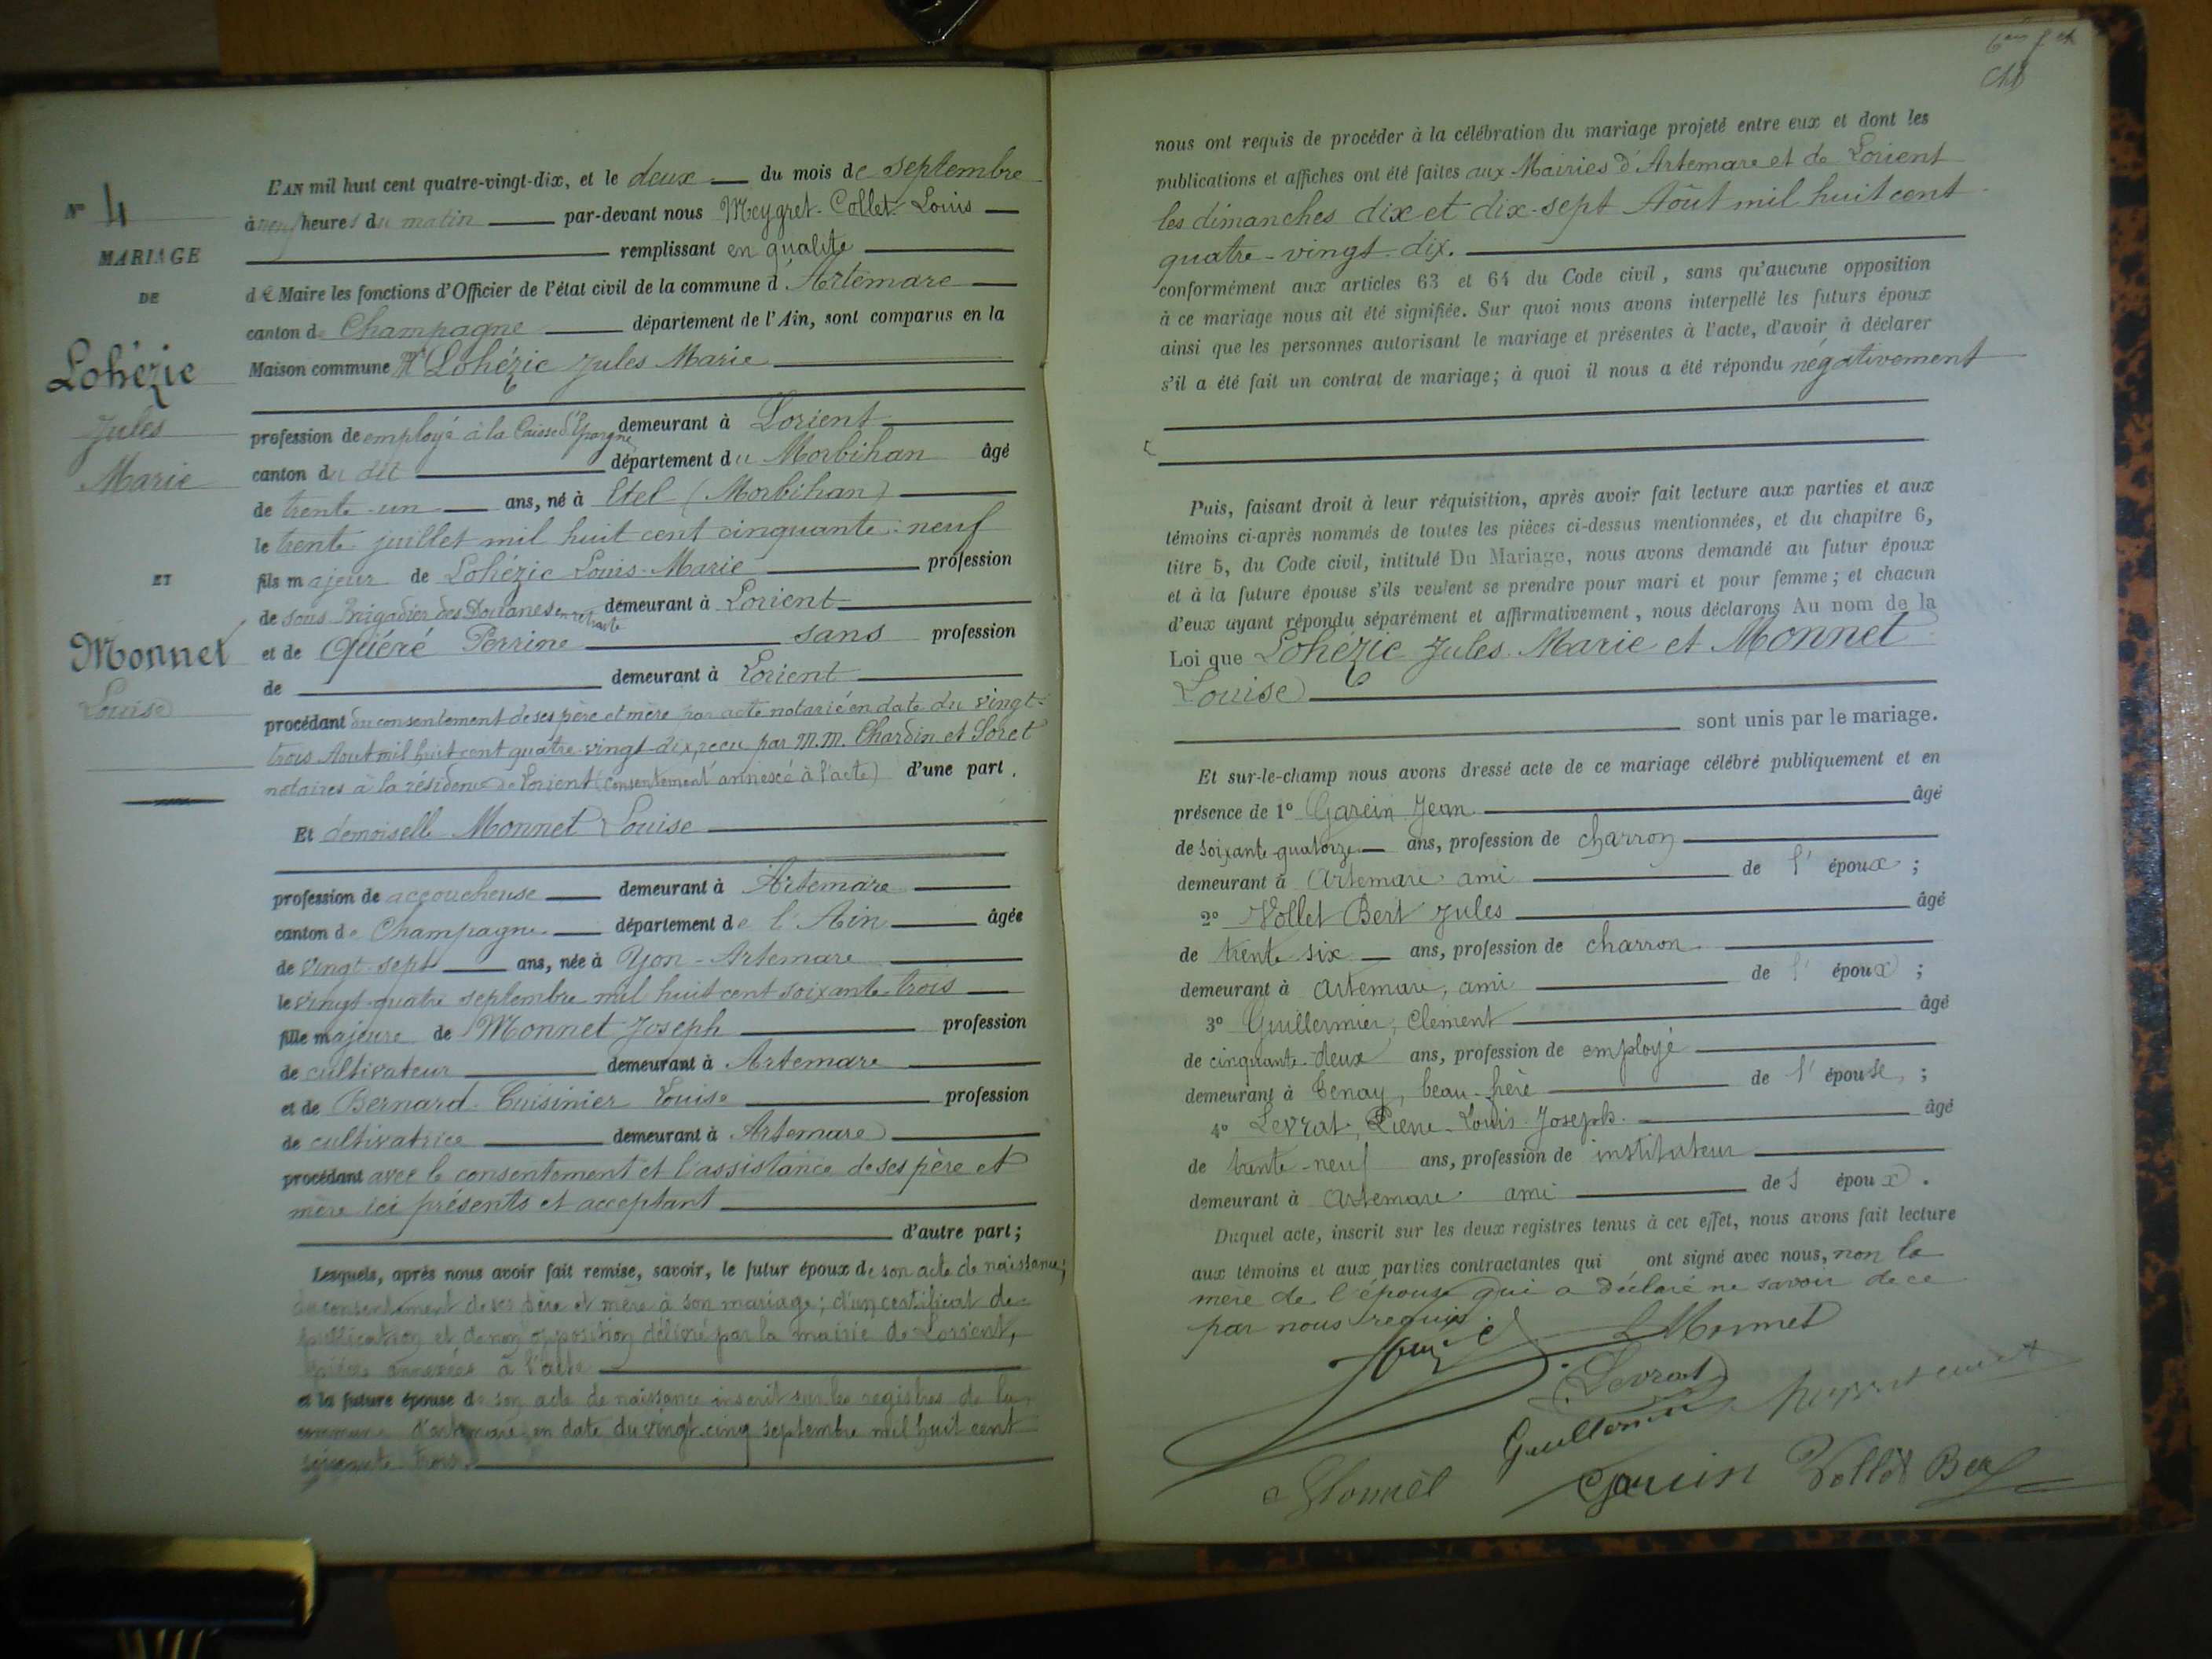 N° 4
MARIAGE
DE
Lohézic
Jules
Marie
ET
Monnet
Louise
L'AN mil huit cent quatre-vingt-dix, et le deux du mois de septembre
à neuf heures du matin par-devant nous Meygret-Collet Louis
remplissant en qualité
de Maire les fonctions d'Officier de l'état civil de la commune d'Artemare
canton de Champagne département de l'Ain, sont comparus en la
Maison commune Mr Lohézic Jules Marie
profession de employé à la Caisse d'Epargne demeurant à Lorient
canton du dit département du Morbihan âgé
de trente-un ans, né à Etel (Morbihan)
le trente juillet mil huit cent cinquante-neuf
fils majeur de Lohézic Louis-Marie profession
de sous Brigadier des Douanes en retraite demeurant à Lorient
et de Quéré Perrine sans profession
de demeurant à Lorient
procédant du consentement de ses père et mère par acte notarié en date du vingt-
trois Aout mil huit cent quatre-vingt-dix, reçu par M.M. Chardin et Soret
notaires à la résidence de Lorient (consentement annexé à l'acte) d'une part,
Et demoiselle Monnet Louise
profession de accoucheuse demeurant à Artemare
canton de Champagne département de l'Ain âgée
de vingt-sept ans, née à Yon-Artemare
le vingt-quatre septembre mil huit cent soixante-trois
fille majeure de Monnet Joseph profession
de cultivateur demeurant à Artemare
et de Bernard-Cuisinier Louise profession
de cultivatrice demeurant à Artemare
procédant avec le consentement et l'assistance de ses père et
mère ici présents et acceptant
d'autre part;
Lesquels, après nous avoir fait remise, savoir, le futur époux de son acte de naissance;
du consentement de ses père et mère à son mariage; d'un certificat de
publication et de non opposition délivré par la mairie de Lorient,
pièces annexées à l'acte
et la future épouse de son acte de naissance inscrit sur les registres de la
commune d'artemare en date du vingt-cinq septembre mil huit cent
soixante trois
nous ont requis de procéder à la célébration du mariage projeté entre eux et dont les
publications et affiches ont été faites aux Mairies d'Artemare et de Lorient
les dimanches dix et dix-sept Août mil huit cent
quatre-vingt-dix.
conformément aux articles 63 et 64 du Code civil, sans qu'aucune opposition
à ce mariage nous ait été signifiée. Sur quoi nous avons interpellé les futurs époux
ainsi que les personnes autorisant le mariage et présentes à l'acte, d'avoir à déclarer
s'il a été fait un contrat de mariage; à quoi il nous a été répondu négativement
Puis, faisant droit à leur réquisition, après avoir fait lecture aux parties et aux
témoins ci-après nommés de toutes les pièces ci-dessus mentionnées, et du chapitre 6,
titre 5, du Code civil, intitulé Du Mariage, nous avons demandé au futur époux
et à la future épouse s'ils veulent se prendre pour mari et pour femme; et chacun
d'eux ayant répondu séparément et affirmativement, nous déclarons Au nom de la
Loi que Lohézic Jules Marie et Monnet
Louise
sont unis par le mariage.
Et sur-le-champ nous avons dressé acte de ce mariage célébré publiquement et en
présence de 1° Garcin Jean âgé
de soixante-quatorze ans, profession de charron
demeurant à Artemare ami de l'époux;
2° Vollet Bert Jules âgé
de trente six ans, profession de charron
demeurant à artemare, ami de l'époux;
3° Guillermier, Clement âgé
de cinquante-deux ans, profession de employé
demeurant à Tenay, beau-frère de l'épouse;
4° Levrat, Pierre-Louis-Joseph âgé
de trente-neuf ans, profession de instituteur
demeurant à artemare ami de l'époux.
Duquel acte, inscrit sur les deux registres tenus à cet effet, nous avons fait lecture
aux témoins et aux parties contractantes qui ont signé avec nous, non la
mère de l'épouse qui a déclaré ne savoir de ce
par nous requis.
L Monnet
Levrat
Guillermier
Monnet
Garcin
Vollet Bert